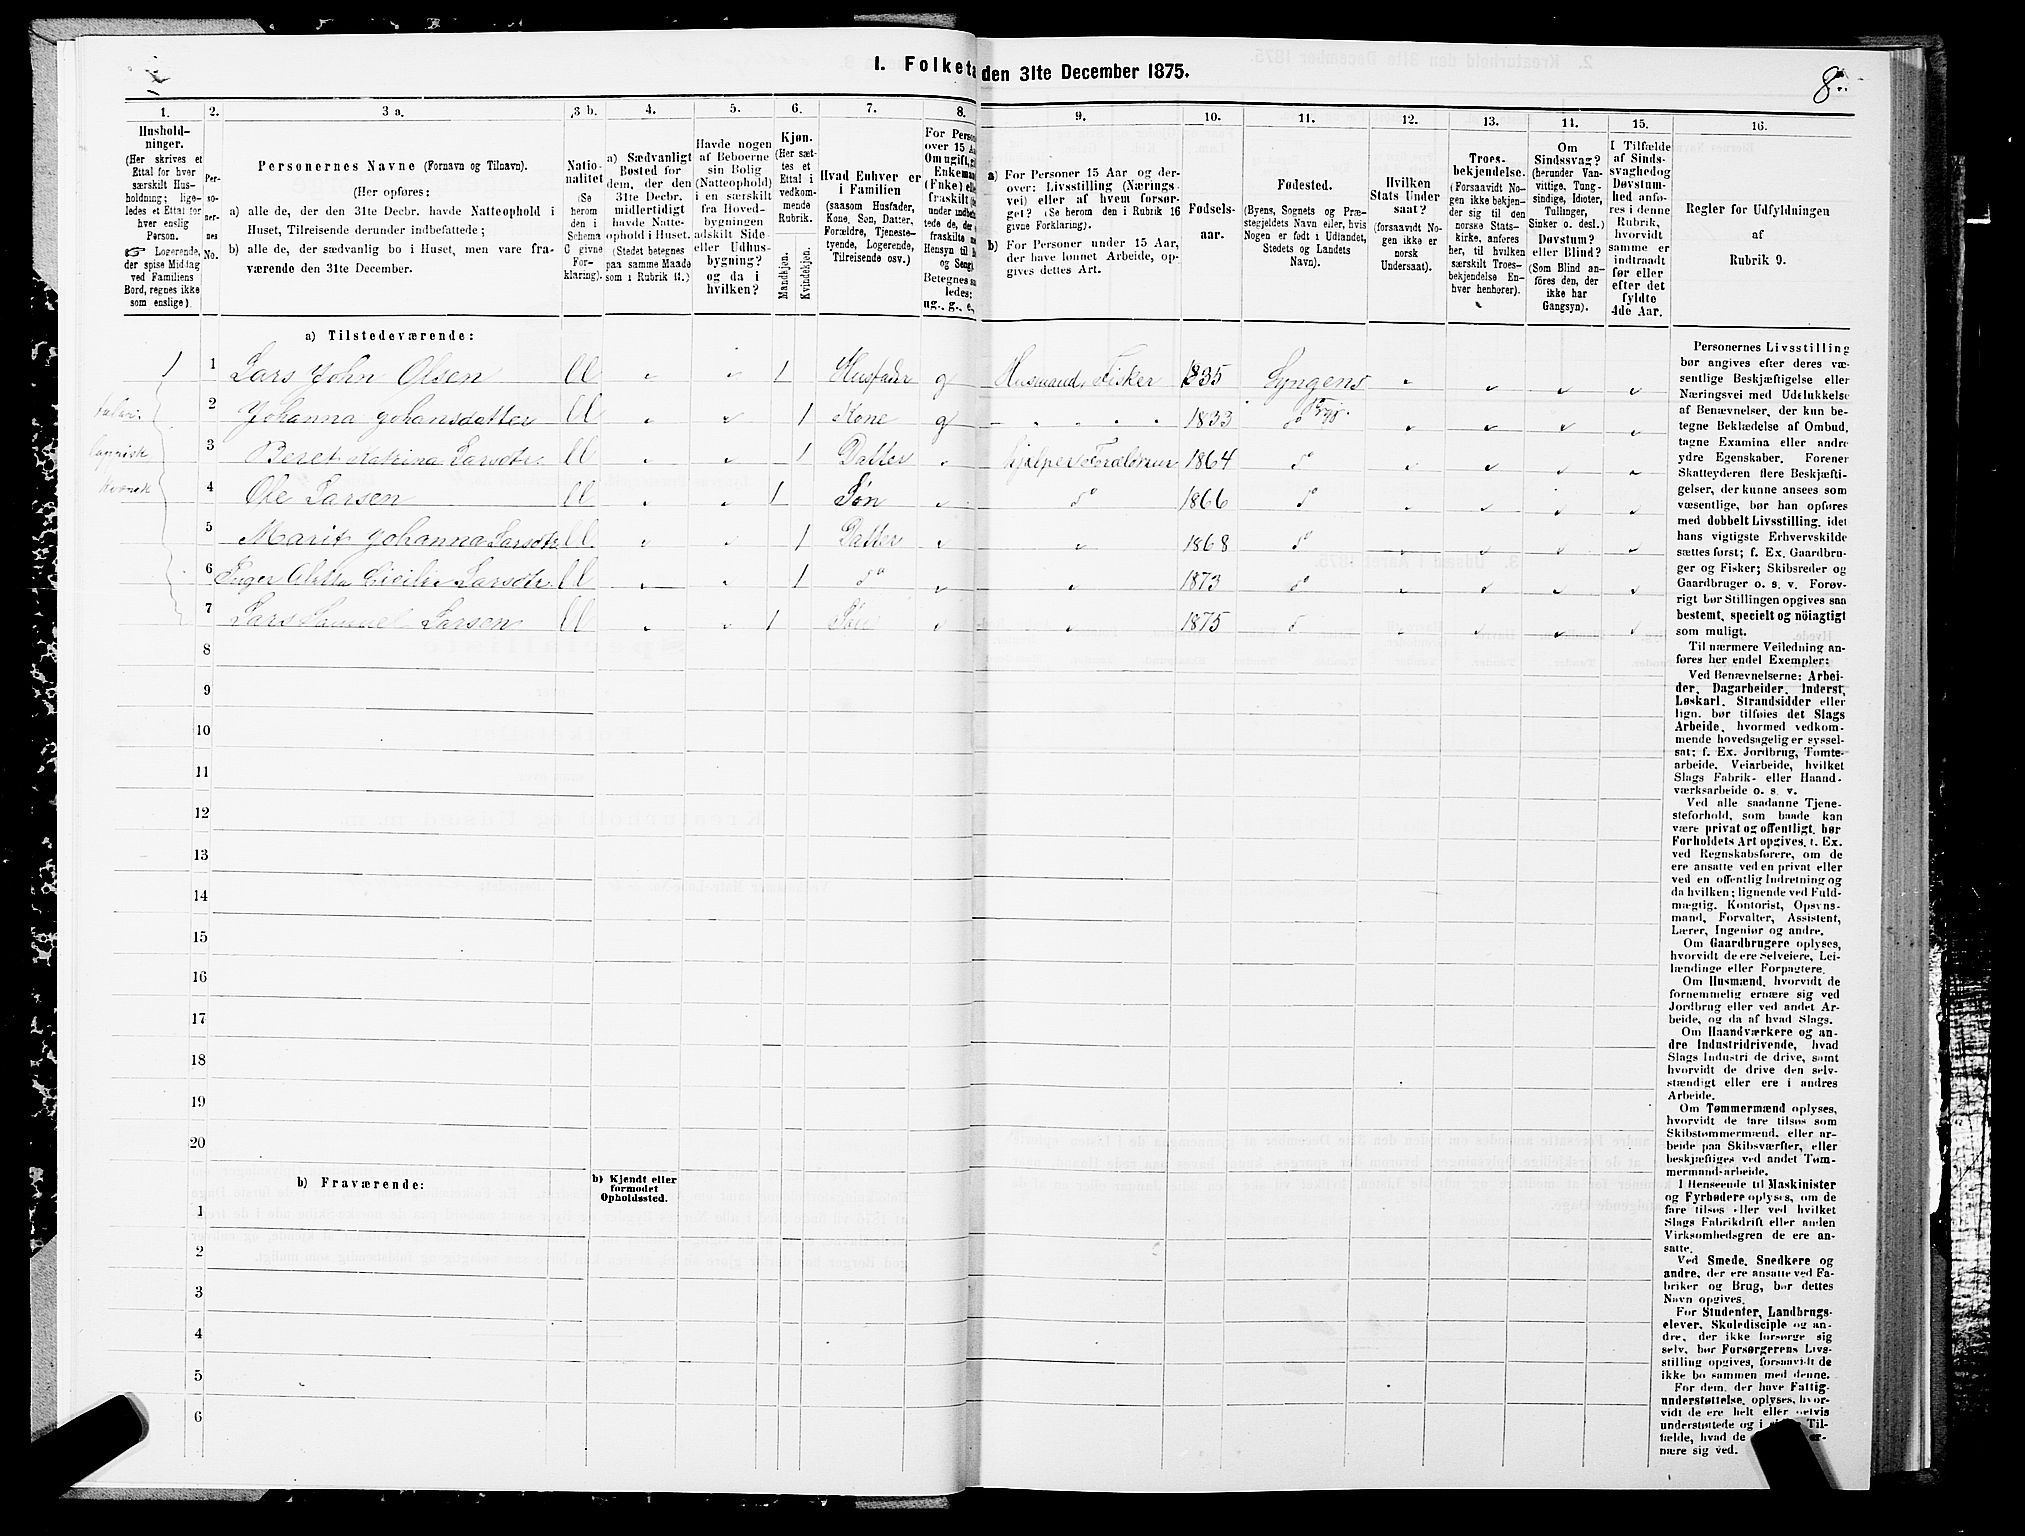 I. Folketa den 31te December 1875.
8
1. 2. 3 a. 3 b. 4. 5. 6. 7. 8. 9. 10. 11. 12. 13. 14. 15. 16.
Hushold-
ninger.
(Her skrives et
Ettal for hver
særskilt Hus-
holdning; lige-
ledes et Ettal for
hver enslig
Person.
☞ Logerende,
der spise Middag
ved Familiens
Bord, regnes ikke
som enslige).
Per-
so-
ner-
nes
No.
Personernes Navne (Fornavn og Tilnavn).
(Her opføres:
a) alle de, der den 31te Decbr. havde Natteophold i
Huset, Tilreisende derunder indbefattede;
b) alle de, der sædvanlig bo i Huset, men vare fra-
værende den 31te December.
Natio-
nalitet
(Se
herom
den i
Schema
C givne
For-
klaring).
a) Sædvanligt
Bosted for
dem, der den
31te Decbr.
midlertidigt
havde Natte-
ophold i Huset.
(Stedet betegnes
paa samme Maade
som i Rubrik 11.)
Havde nogen
af Beboerne
sin Bolig
(Natteophold)
i en særskilt
fra Hoved-
bygningen
adskilt Side-
eller Udhus-
bygning?
og da i
hvilken?
Kjøn.
(Her sæt-
tes et
Ettal i
vedkom-
mende
Rubrik.
Mandkjøn.
Kvindekjøn.
Hvad Enhver er
i Familien
(saasom Husfader,
Kone, Søn, Datter,
Forældre, Tjeneste-
tyende, Logerende,
Tilreisende osv.)
For Person
over 15 Aa
Om ugift, gi
Enkeman
(Enke) elle
fraskilt (he
under indbefat-
tede de, der er
fraskilte m
Hensyn til b
og Seng).
Betegnes saa
ledes:
ug., g., e.,
a) For Personer 15 Aar og der-
over: Livsstilling (Nærings-
vei) eller af hvem forsør-
get? (Se herom den i Rubrik 16
givne Forklaring).
b) For Personer under 15 Aar,
der have lønnet Arbeide, op-
gives dettes Art.
Fødsels-
aar.
Fødested.
(Byens, Sognets og Præ-
stegjeldets Navn eller, hvis
Nogen er født i Udlandet,
Stedets og Landets
Navn).
Hvilken
Stats Under
saat?
(forsaavidt No-
gen ikke er
norsk
Undersaat).
Troes-
bekjendelse.
(Forsaavidt No-
gen ikke bekjen-
der sig til den
norske Stats-
kirke, anføres
her, til hvilken
særskilt Troes-
bekjendelse En-
hver henhører).
Om
Sindssvag?
(herunder Van-
vittige, Tung-
sindige, Idioter,
Tullinger,
Sinker o. desl.)
Døvstum?
eller Blind?
(Som Blind an-
føres den, der
ikke har
Gangsyn).
I Tilfælde
af Sinds-
svaghed og
Døvstum-
hed anfø-
res i denne
Rubrik,
hvorvidt
samme er
indtraadt
før eller
efter det
fyldte
4de Aar.
Regler for Udfyldningen
af
Rubrik 9.
a) Tilstedeværende:
1 1 Lars John Olsen ll 1 Husfader g Husmand, Fisker 1835 Lyngens
2 Johanna Johansdatter ll 1 Kone g 1833 do Prgj.
3 Beret Katrina Larsdtr. ll 1 Datter hjælper Forældrene 1864 do
4 Ole Larsen ll 1 Søn do 1866 do
5 Marit Johanna Larsdtr ll 1 Datter 1868 do
6 Inger Cicilie Larsdtr. ll 1 do 1873 do
7 Lars Samuel Larsen ll 1 Søn 1875 do
taler
lappisk
kvænsk
8
9
10
11
12
13
14
15
16
17
18
19
20
b) Fraværende:
b) Kjendt eller
formodet
Opholdssted.
1
2
3
4
5
6
Personernes Livsstilling
bør angives efter deres væ-
sentlige Beskjæftigelse eller
Næringsvei med Udelukkelse
af Benævnelser, der kun be-
tegne Beklædelse af Ombud,
tagne Examina eller andre
ydre Egenskaber. Forener
Skatteyderen flere Beskjæfti-
gelser, der kunne ansees som
væsentlige, bør han opføres
med dobbelt Livsstilling, idet
hans vigtigste Erhvervskilde
sættes først; f. Ex. Gaardbru-
ger og Fisker; Skibsreder og
Gaardbruger o. s. v. Forøv-
rigt bør Stillingen opgives saa
bestemt, specielt og nöiagtigt
som muligt.
Til nærmere Veiledning an-
føres her endel Exempler:
Ved Benævnelserne: Arbei-
der, Dagarbeider, Inderst,
Løskarl, Strandsidder eller
lign. bør tilføies det Slags
Arbeide, hvormed vedkom-
mende hovedsagelig er syssel-
sat; f. Ex. Jordbrug, Tømte-
arbeide, Veiarbeide, hvilket
Slags Fabrik- eller Haand-
værksarbeide o. s. v.
Ved alle saadanne Tjene-
steforhold, som baade kan
være privat og offentligt, bør
Forholdets Art opgives, t. Ex.
ved Regnskabsførere, om de
ere ansatte ved en privat eller
ved en offentlig Indretning og
da hvilken; lignende ved Fuld-
mægtig, Kontorist, Opsyns-
mand, Forvalter, Assistent,
Lærer, Ingeniør og andre.
Om Gaardbrugere oplyses,
hvorvidt de ere Selveiere, Lei-
lændinge eller Forpagtere.
Om Husmænd, hvorvidt de
fornemmelig ernære sig ved
Jordbrug eller ved andet Ar-
beide, og da af hvad Slags.
Om Haandværkere og an-
dre Industridrivende, hvad
Slags Industri de drive, samt
hvorvidt de drive den selv-
stændigt eller ere i andres
Arbeide.
Om Tømmermænd oplyses,
hvorvidt de fare tilsøs som
Skibstømmermænd, eller ar-
beide paa Skibsværfter, eller
beskjæftiges ved andet Tøm-
mermandarbeide.
I Henseende til Maskinister
og Fyrbødere oplyses, om de
fare tilsøs eller ved hvilket
Slags Fabrikdrift eller anden
Virksomhedsgren de ere an-
satte.
Ved Smede, Snedkere og
andre, der ere ansatte ved Fa-
briker og Brug, bør dettes
Navn opgives.
For Studenter, Landbrugs-
elever, Skoledisciple og an-
dre, der ikke forsørge sig
selv, bør Forsørgerens Livs-
stilling opgives, forsaavidt de
ikke bo sammen med denne.
For dem, der have Fattig-
understøttelse, oplyses, hvor-
vidt de ere helt eller delvis
understøttede og i s Til-
fælde, hvad de er-
nære sig ved.